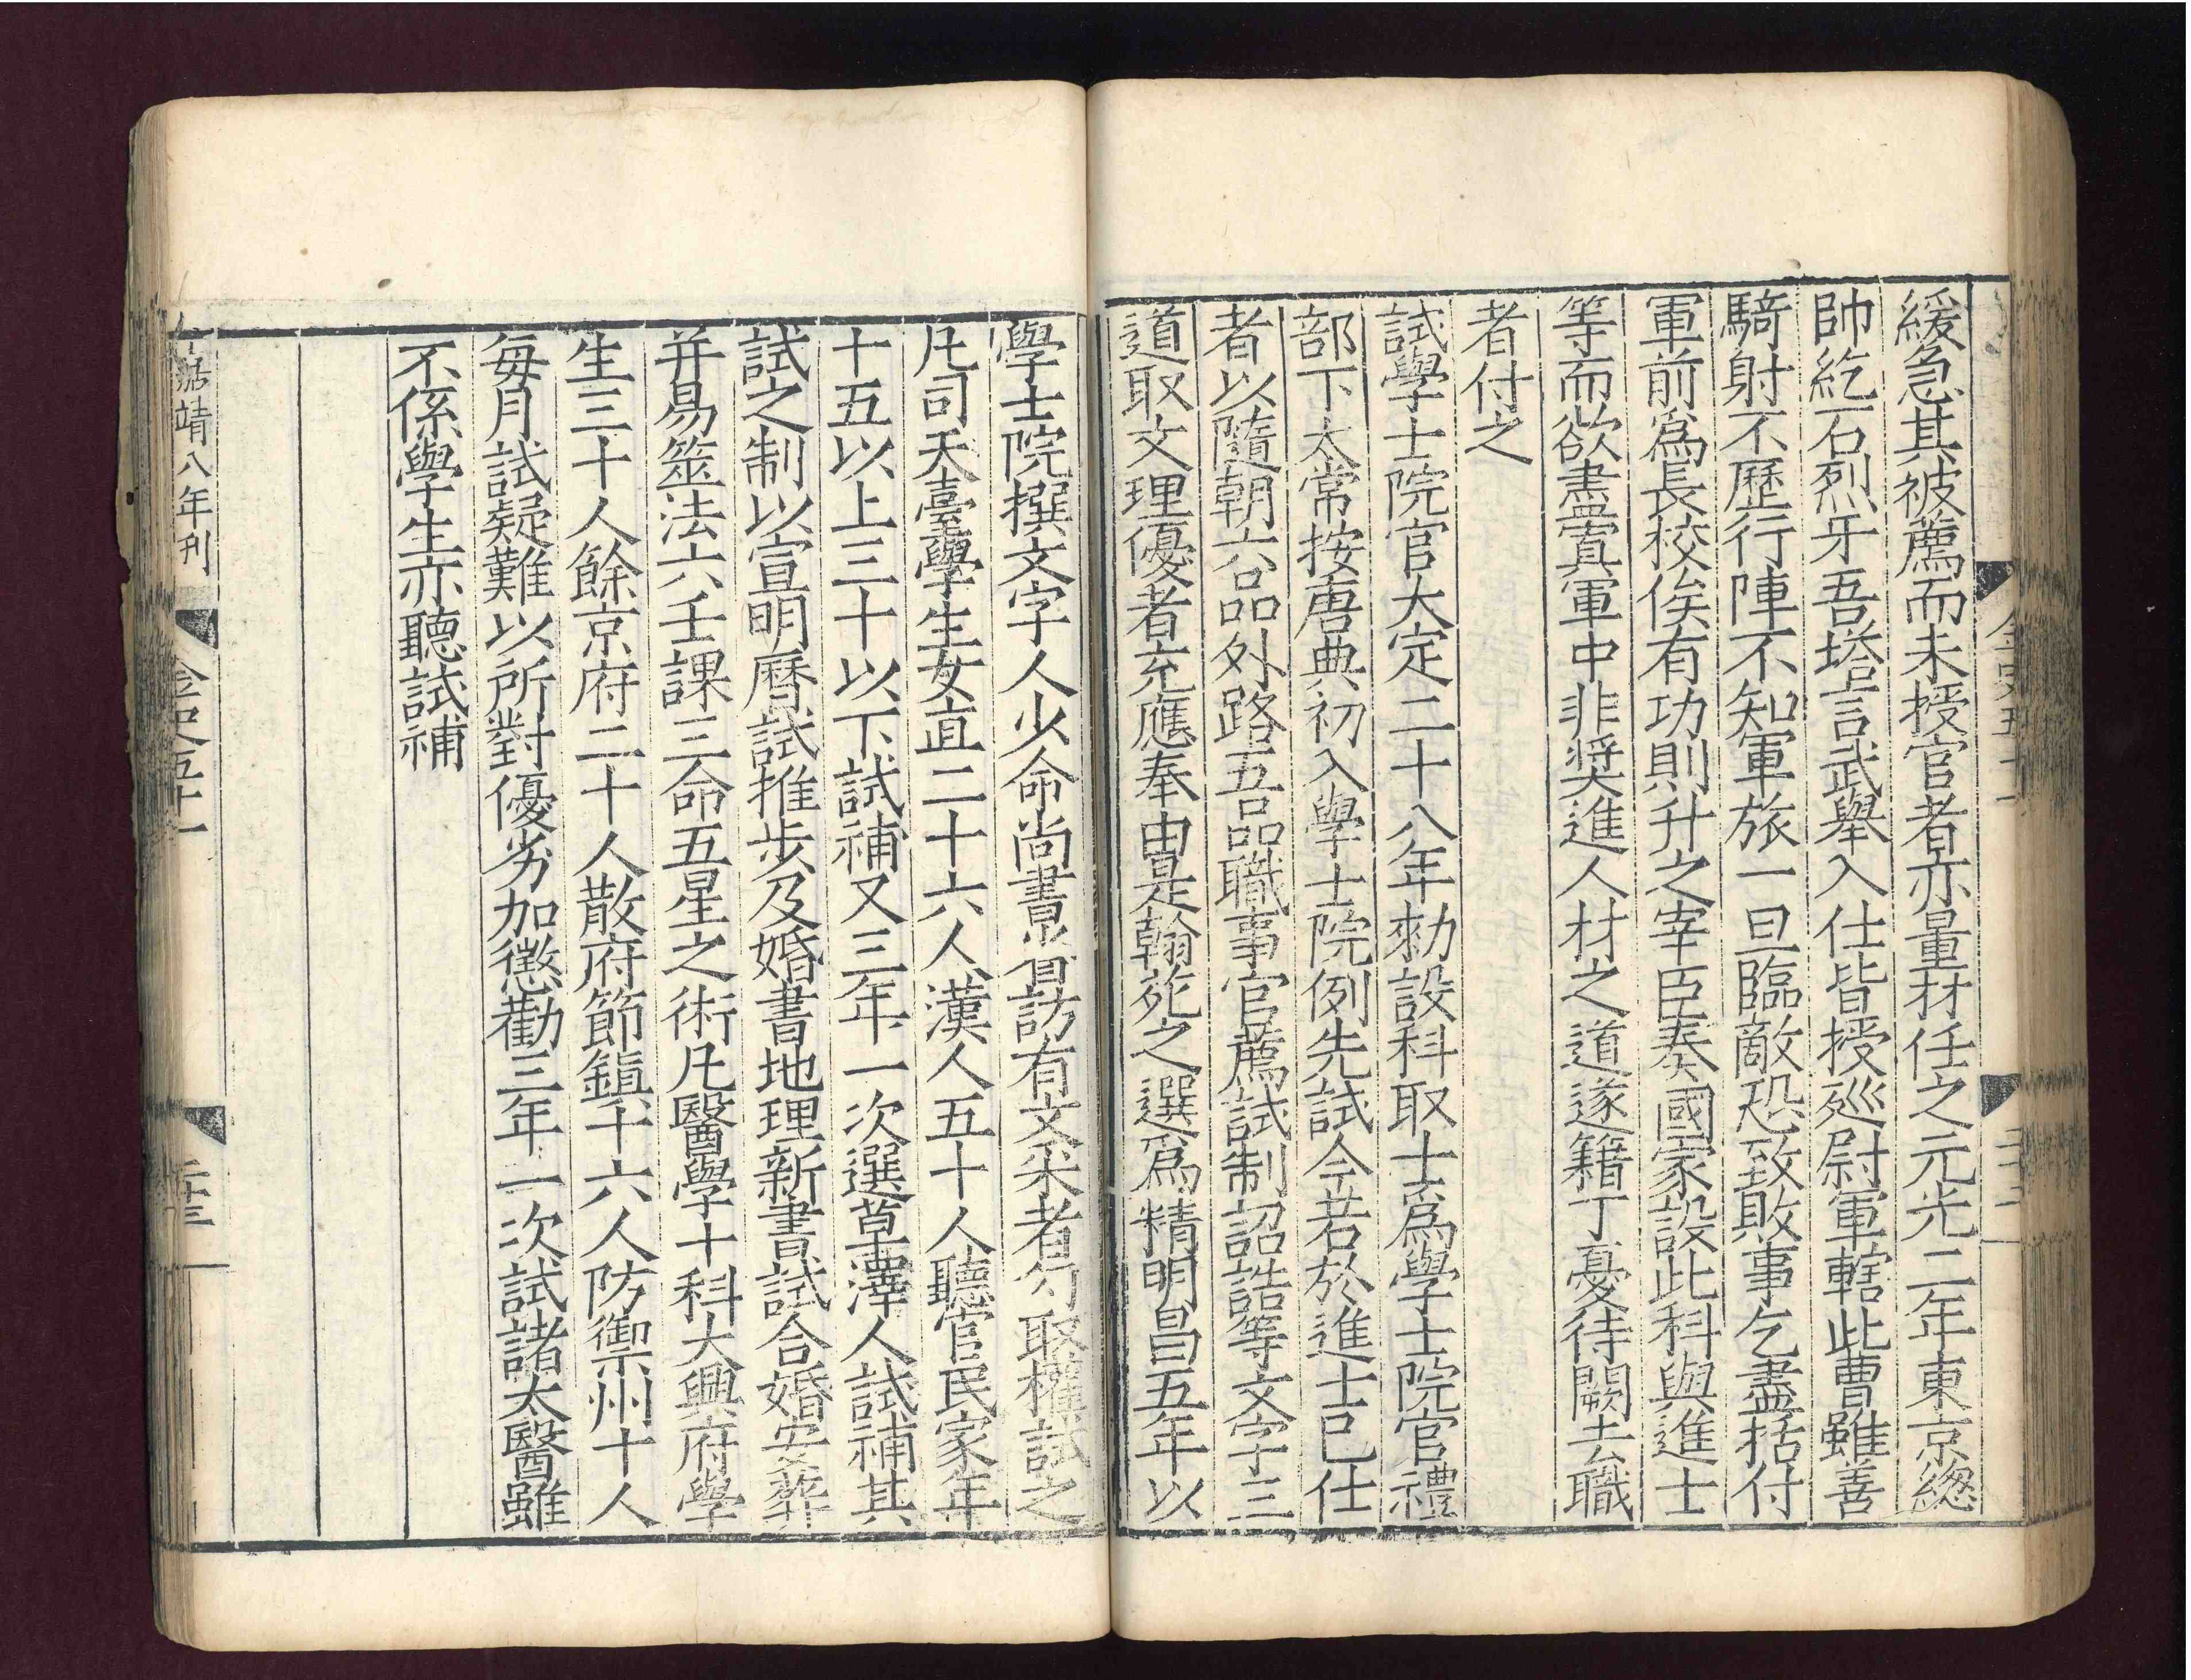 緩急其被薦而未授官者亦量材任之元光二年東京緫
帥紇石烈牙吾㙮言武舉入仕皆授廵尉軍轄此曹雖善
騎射不歷行陣不知軍旅一旦臨敵恐致敗事乞盡括付
軍前爲長校俟有功則升之宰臣奏國家設此科與進士
等而欲盡寘軍中非奨進人材之道遂籍丁憂待闕去職
者付之
試學士院官大定二十八年勑設科取士爲學士院官禮
部下太常按唐典初入學士院例先試今若於進士已仕
者以隨朝六品外路五品職事官薦試制詔誥等文字三
道取文理優者充應奉由是翰苑之選爲精明昌五年以
學士院撰文字人少命尚書省訪有文采者勾取權試之
凡司天臺學生女直二十六人漢人五十人聽官民家年
十五以上三十以下試補又三年一次選草澤人試補其
試之制以宣明曆試推步及婚書地理新書試合婚安葬
并易筮法六壬課三命五星之術凡醫學十科大興府學
生三十人餘京府二十人散府節鎮十六人防禦州十人
每月試疑難以所對優劣加懲勸三年一次試諸太醫雖
不係學生亦聽試補
嘉靖八年刊
金史五十一